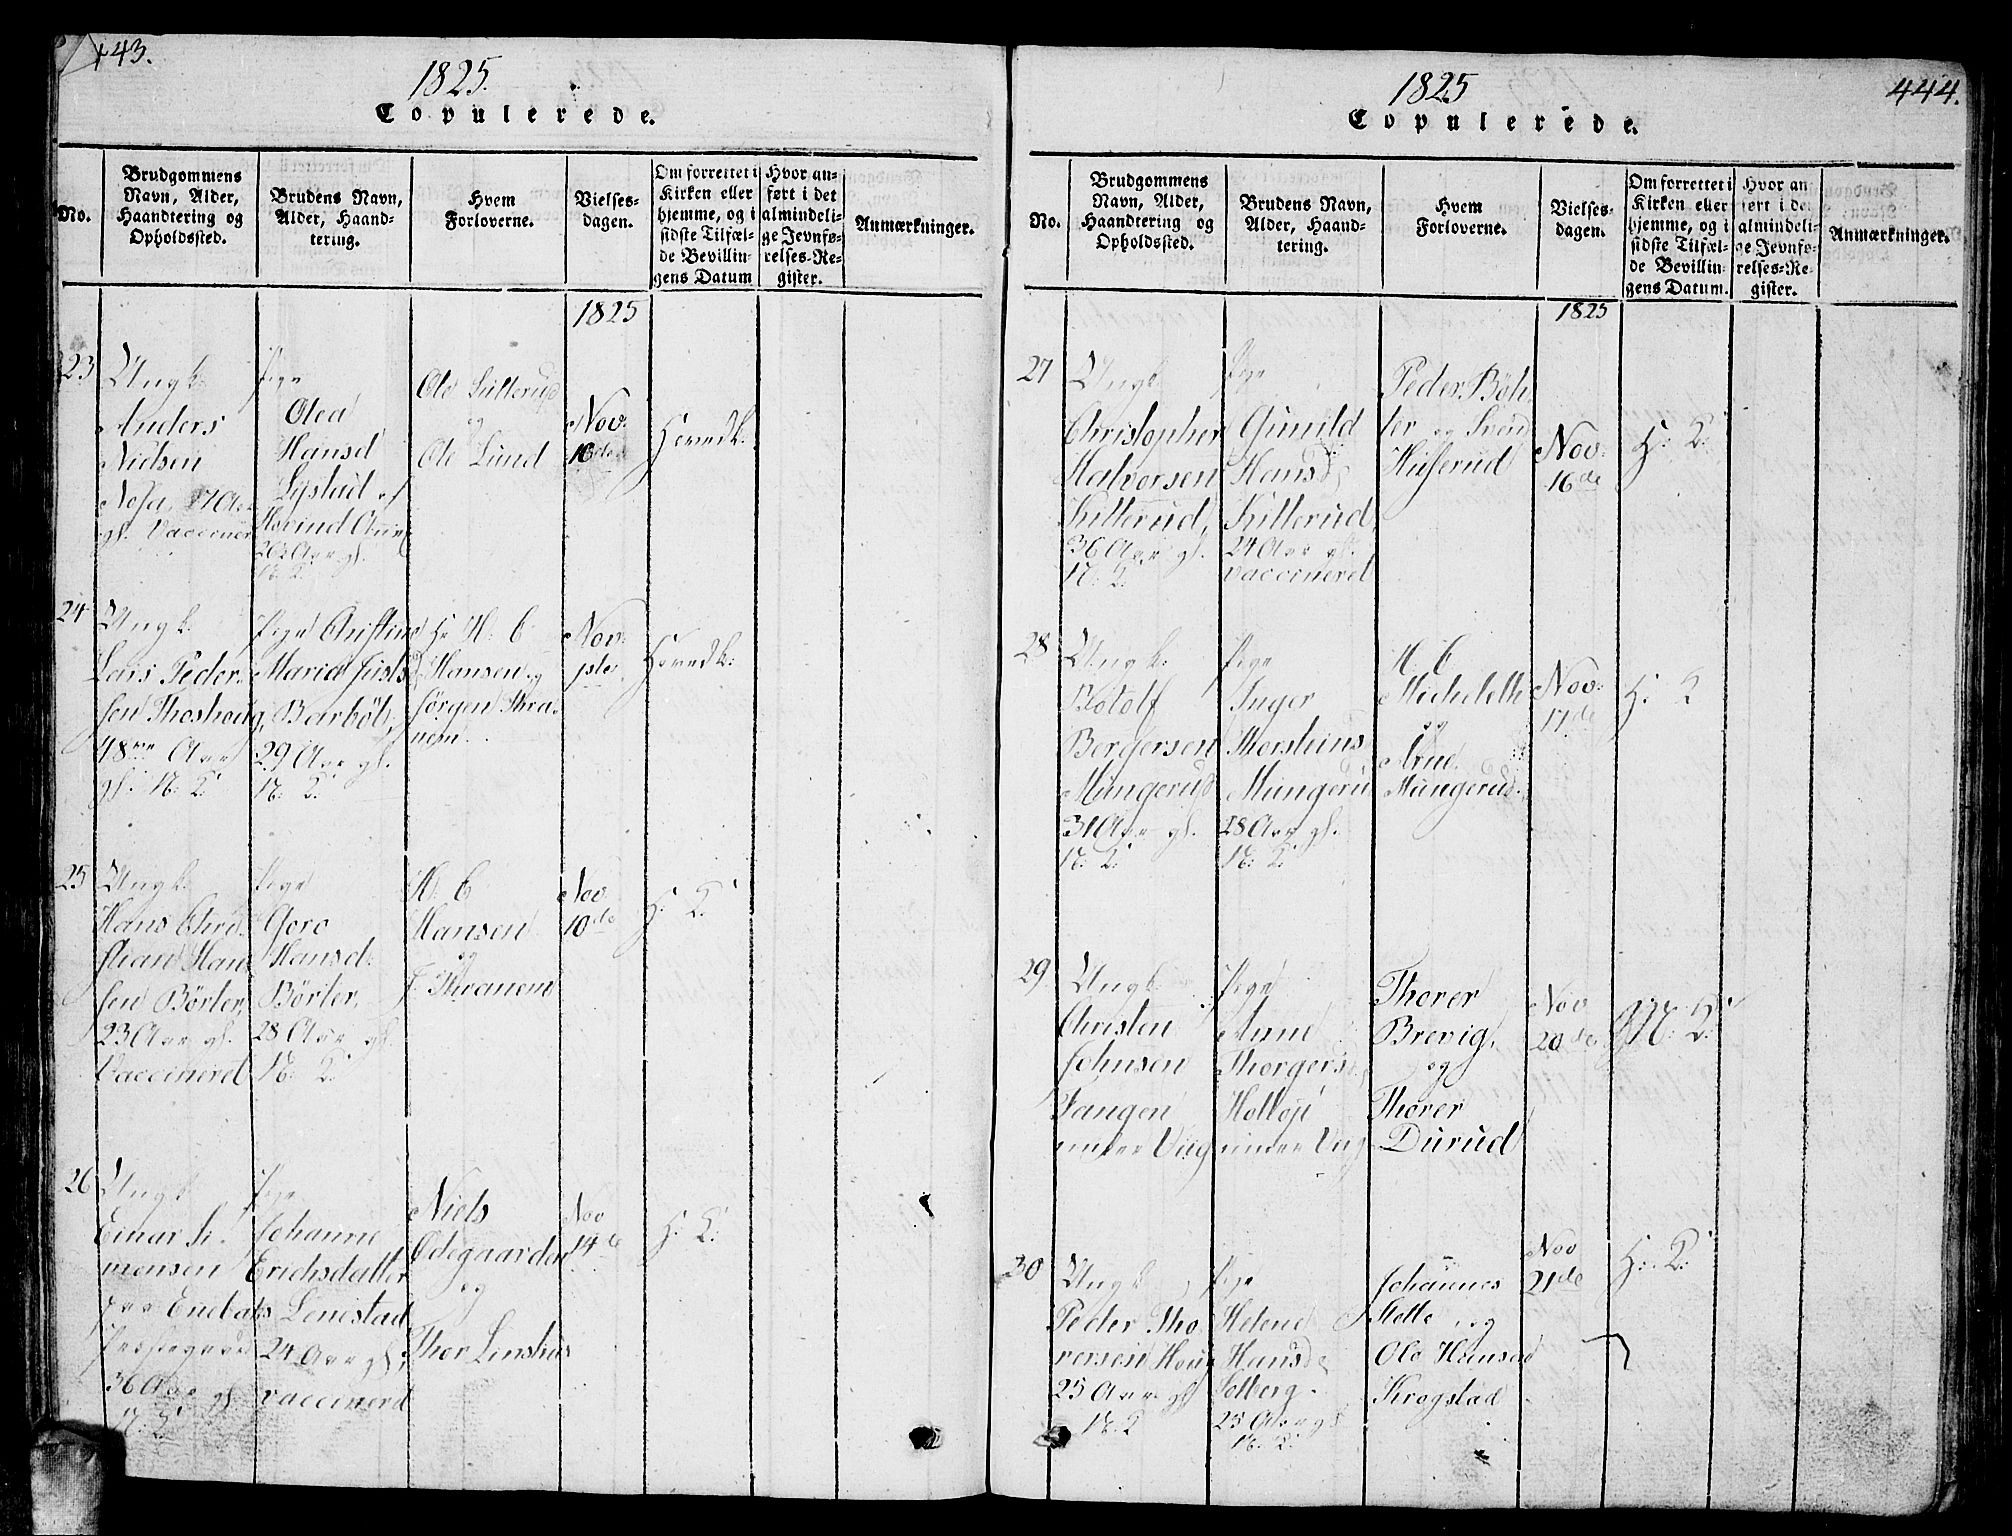 443.
1825.
Copulerede.
No.
Brudgommens
Navn, Alder,
Haandtering og
Opholdssted.
Brudens Navn,
Alder, Haand-
tering.
Hvem
Forloverne.
Vielses-
dagen.
Om forrettet i
Kirken eller
hjemme, og i
sidste Tilfæl-
de Bevillin-
gens Datum
Hvor an-
ført i det
almindeli-
ge Jevnfø-
relses-Re-
gister.
Anmærkninger.
1825
23
Ungk:
Anders
Nielsen
gl. Vaccineret
Pige
Olea
Hansd
Hovind
20 Aar gl.
N. K.
Ole Sutterud
og
Ole Lund
Nov:
16de
Hovedk:
24
Ungk.
Lars Peder-
sen Thoshoug,
48 Aar
gl. N. K.
Pige Christine
Maria Justsd
Barböl,
29 Aar gl.
N. K.
Hr H. C
Hansen og
Jörgen Thra-
nem.
Nov:
1ste
Hovedk:
25
Ungk.
Hans Chri-
stian Han-
sen Börter,
23 Aar gl.
Vaccineret
Pige
Goro
Hansd:
Börter,
28 Aar gl.
N. K.
H. C
Hansen
og
J. Thranem
Nov
10de
H. K.
26
Ungk.
Einar Si-
mensen
Enebaks
Præstegaard
36 Aar gl.
N. K.
Pige
Johanne
Erichsdatter
Lenestad
24 Aar gl,
vaccinerd
Niels
Ödegaarden
og
Thor Lenshus
Nov
14de
H. K.
444.
1825
Copulerede.
No.
Brudgommens
Navn, Alder,
Haandtering og
Opholdssted.
Brudens Navn,
Alder, Haand-
tering.
Hvem
Forloverne.
Vielses-
dagen.
Om forrettet i
Kirken eller
hjemme, og i
sidste Tilfæl-
de Bevillin-
gens Datum.
Hvor an
ført i det
almindeli-
ge Jevnfø-
relses-Re-
gister.
Anmærkninger.
1825
27
Ungk
Christopher
Halvorsen
Kitterud,
36 Aar gl.
N. K.
Pige
Gunild
Hansd,
Kitterud,
24 Aar gl.
vaccineret
Peder Böh-
ler og Svend
Huserud
Nov:
16de
H. K.
28
Ungk.
Botolf
Bergersen
Mungerud
31 Aar gl.
N. K.
Pige
Inger
Thorsteins
Mungerud
28 Aar gl.
N. K.
H. C
Micheleth
og
Arne
Mungerud.
Nov:
17de
H. K
29
Ungk.
Christen
Johnsen
Tangen
under Viig
Pige
Anne
Thorgersd,
under Viig
Thorer
Brevig,
og
Thorer
Durud
Nov
20de
M. K.
30
Ungk
Peder Tho
rersen Houg
25 Aar gl
N. K
Pige
Helene
Hansd
Solberg
25 Aar gl
N. K.
Johannes
og
Ole Hansen
Krogstad
Nov
21de
H. K.